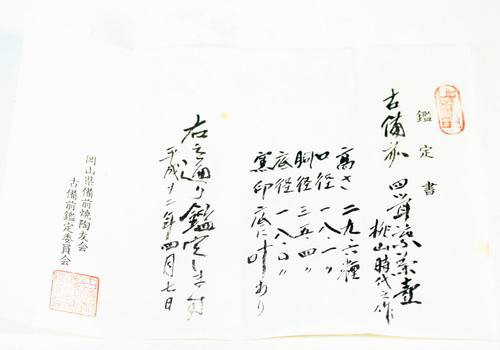 鑑定書
古備前 四耳茶壺
桃山時代之作
高さ 二九.六糎
口径 一八.一〃
胴径 三五.四〃
底径 一八.〇〃
窯印 底に叶あり
右之通り鑑定します
平成十二年四月七日
岡山県備前焼陶友会
古備前鑑定委員会